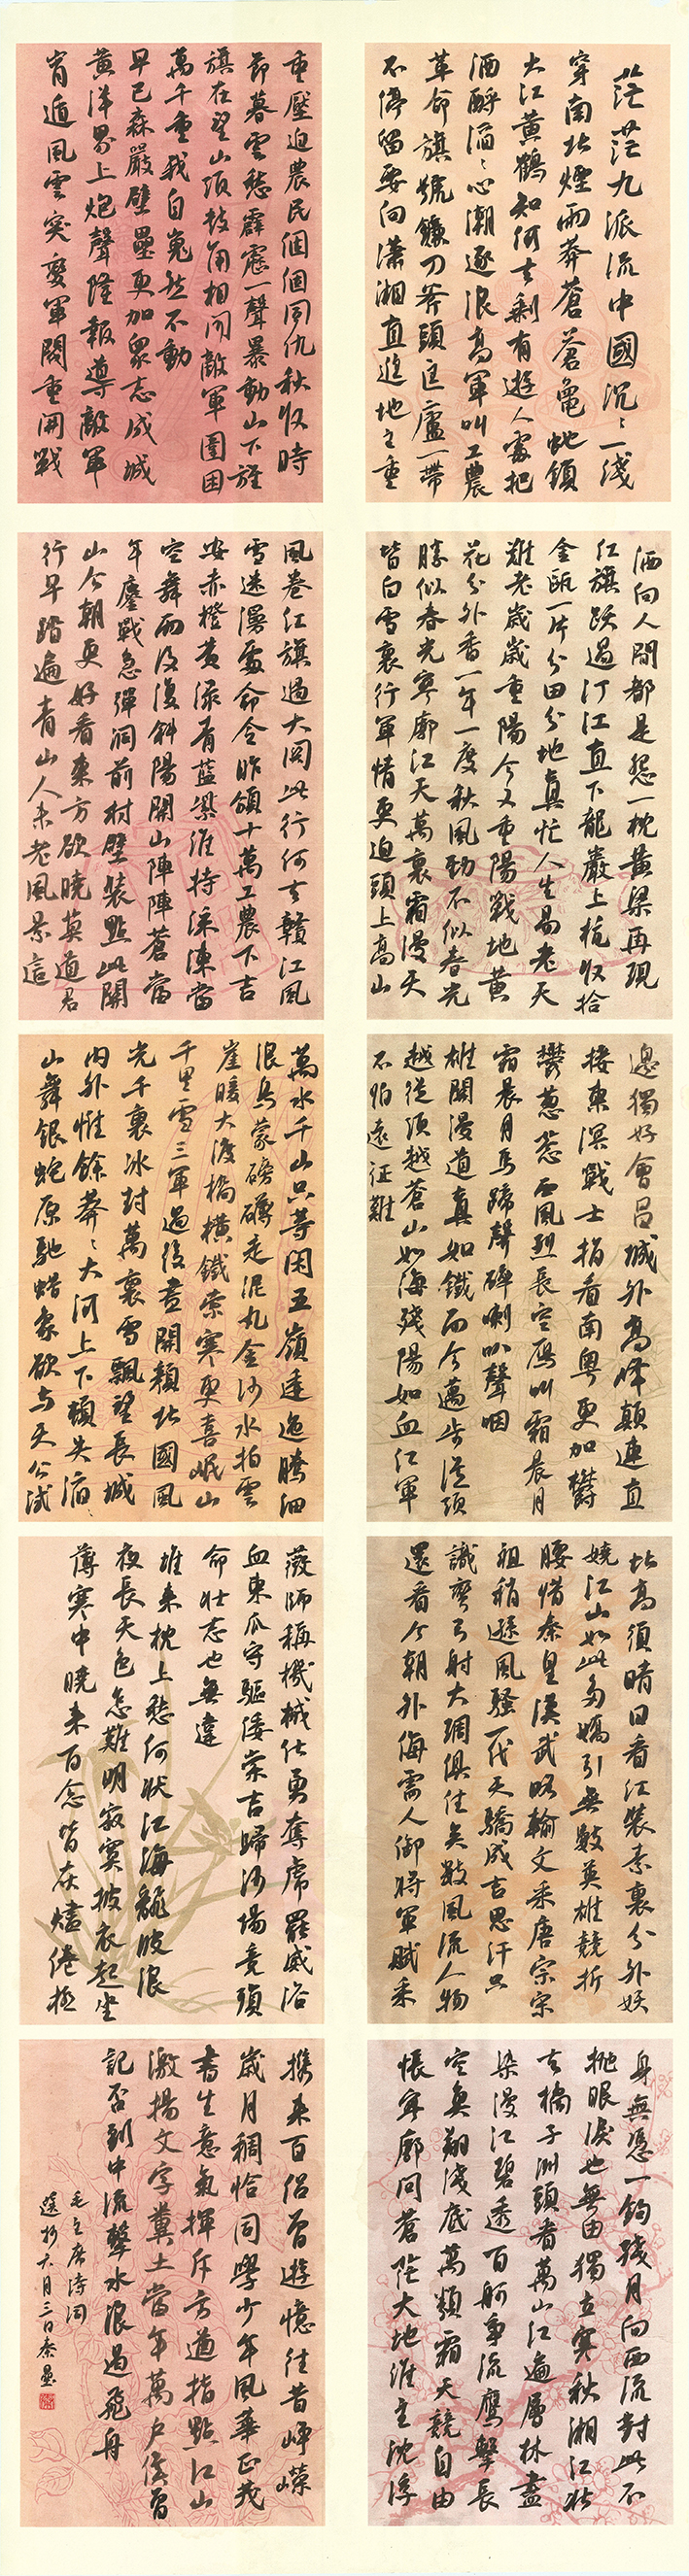 茫茫九派流中國沉〻一线
穿南北煙雨莽蒼蒼龜蛇鎖
大江黃鶴知何去剩有遊人處把
酒酹滔〻心潮逐浪高軍叫工農
革命旗號鐮刀斧頭匡廬一帶
不停留要向瀟湘直進地主重
重壓迫農民個個同仇秋收時
節暮雲愁霹靂一聲暴動山下旌
旗在望山頭鼓角相聞敵軍圍困
萬千重我自巍然不動
早已森嚴壁壘更加衆志成城
黃洋界上炮聲隆報導敵軍
宵遁風雲突變軍閥重開戰
洒向人間都是怨一枕黃梁再現
红旗跃過汀江直下龍巖上杭收拾
金甌一片分田分地真忙人生易老天
難老歲歲重陽今又重陽戰地黃
花分外香一年一度秋風勁不似春光
勝似春光寥廓江天萬裏霜漫天
皆白雪裏行軍情更迫頭上高山
風卷红旗過大関此行何去贛江風
雪迷漫處命令昨頒十萬工農下吉
安赤橙黄渌青藍紫誰持采凍當
空舞雨後復斜陽開山陣陣蒼當
年鏖戰急彈洞前村壁裝點此關
山今朝更好看東方欲曉莫道君
行早踏遍青山人未老風景這
邊獨好會昌城外高峰顛連直
接東溟戰士指看南粵更加鬱
鬱葱葱西風烈長空雁叫霜晨月
霜晨月馬蹄聲碎喇叭聲咽
雄關漫道真如鐵而今邁步從頭
越從頭越蒼山如海殘陽如血红軍
不怕遠征難
萬水千山只等閑五嶺逶迤騰細
浪烏蒙磅礴走泥丸金沙水拍雲
崖暖大渡橋橫鐵索寒更喜岷山
千里雪三軍過後盡開顏北國風
光千裏冰封萬裏雪飄望長城
内外惟餘莽〻大河上下頓失滔〻
山舞銀蛇原馳蜡象欲与天公试
比高須晴日看红裝素裹分外妖
嬈江山如此多嬌引無數英雄競折
腰惜秦皇漢武略輸文采唐宗宋
祖稍遜風騷一代天驕成吉思汗只
識彎弓射大雕俱往矣數風流人物
還看今朝外侮需人御將軍賦采
薇師稱機械化勇奪虎羆威浴
血東瓜守驅倭棠吉歸沙場竟殞
命壯志也無違
堆來枕上愁何狀江海翻波浪
夜長天色怎難明寂寞披衣起坐
薄寒中曉來百念皆灰燼倦極
身無憑一鈎殘月向西流對此不
抛眼淚也無由獨立寒秋湘江北
去橘子洲頭看萬山红遍層林盡
染漫江碧透百舸争流鷹擊長
空魚翔淺底萬類霜天競自由
悵寥廓問蒼茫大地誰主沈浮
攜來百侶曾遊憶往昔崢嶸
歲月稠恰同學少年風華正茂
書生意氣揮斥方遒指點江山
激揚文字糞土當年萬户侯曾
記否到中流擊水浪遏飛舟
毛主席詩詞
選抄六月三日秦昱